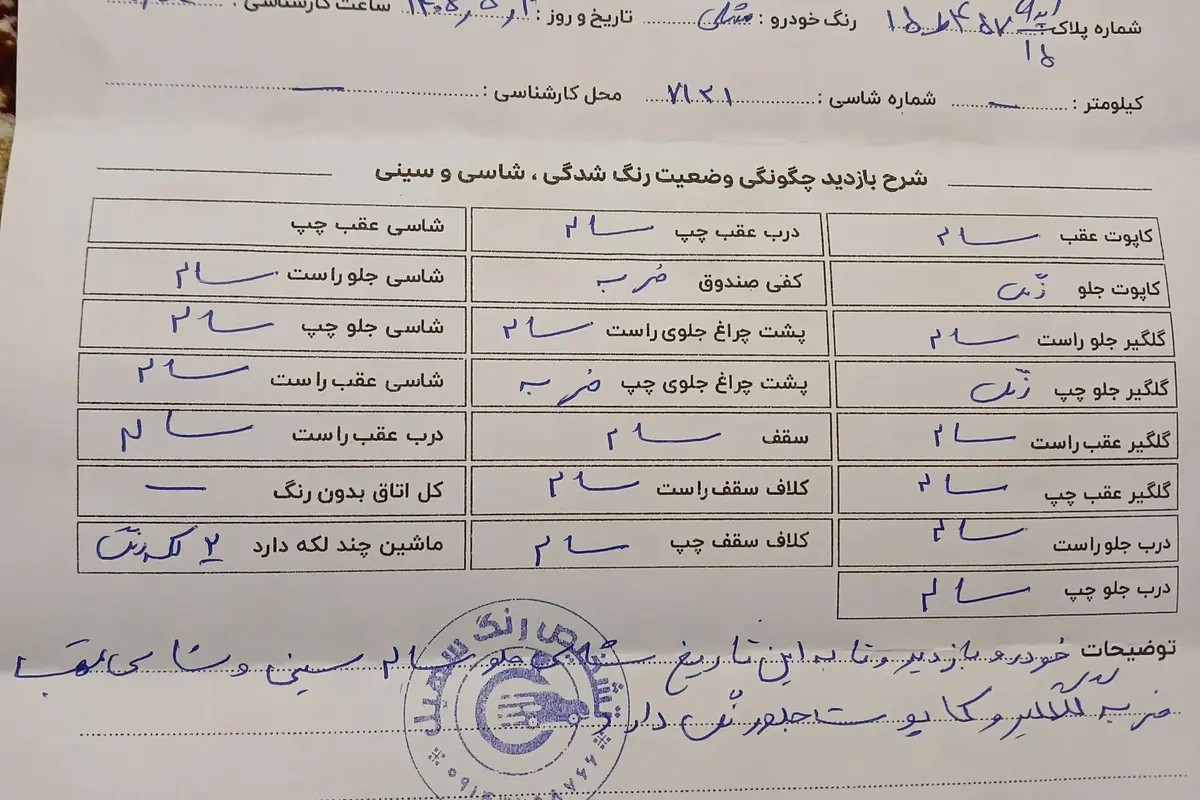 شماره پلاک: ۱۵ ط ۴۵۷ ایران ۱۵ رنگ خودرو : مشکی تاریخ و روز : ساعت کارشناسی :
کیلومتر : — شماره شاسی : ۷۱۳۱ محل کارشناسی : —
شرح بازدید چگونگی وضعیت رنگ شدگی ، شاسی و سینی
کاپوت عقب سالم درب عقب چپ سالم شاسی عقب چپ
کاپوت جلو رنگ کفی صندوق ضربه شاسی جلو راست سالم
گلگیر جلو راست سالم پشت چراغ جلوی راست سالم شاسی جلو چپ سالم
گلگیر جلو چپ رنگ پشت چراغ جلوی چپ ضربه شاسی عقب راست سالم
گلگیر عقب راست سالم سقف سالم درب عقب راست سالم
گلگیر عقب چپ سالم کلاف سقف راست سالم کل اتاق بدون رنگ —
درب جلو راست سالم کلاف سقف چپ سالم ماشین چند لکه دارد ۲ لکه رنگ
درب جلو چپ سالم
توضیحات خودرو بازدید و تا به این تاریخ شاسی جلو سالم سینی و شاسی عقب
ضربه گلگیر و کاپوت جلو رنگ دارد
تشخیص رنگ سهیل